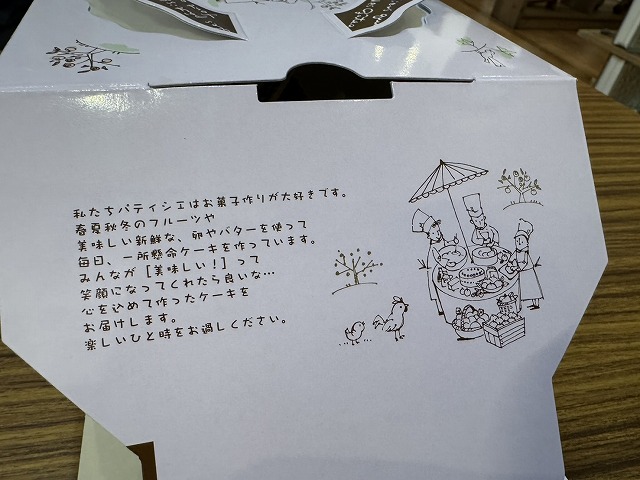 私たちパティシエはお菓子作りが大好きです。
春夏秋冬のフルーツや
美味しい新鮮な、卵やバターを使って
毎日、一所懸命ケーキを作っています。
みんなが［美味しい！］って
笑顔になってくれたら良いな…
心を込めて作ったケーキを
お届けします。
楽しいひと時をお過しください。